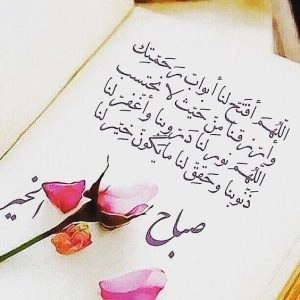 اللهم أفتح لنا أبواب رحمتك
وأرزقنا من حيث لا نحتسب
اللهم نور لنا دروبنا وأغفر لنا
ذنوبنا وحقق لنا مايكون خير لنا
صباح الخير